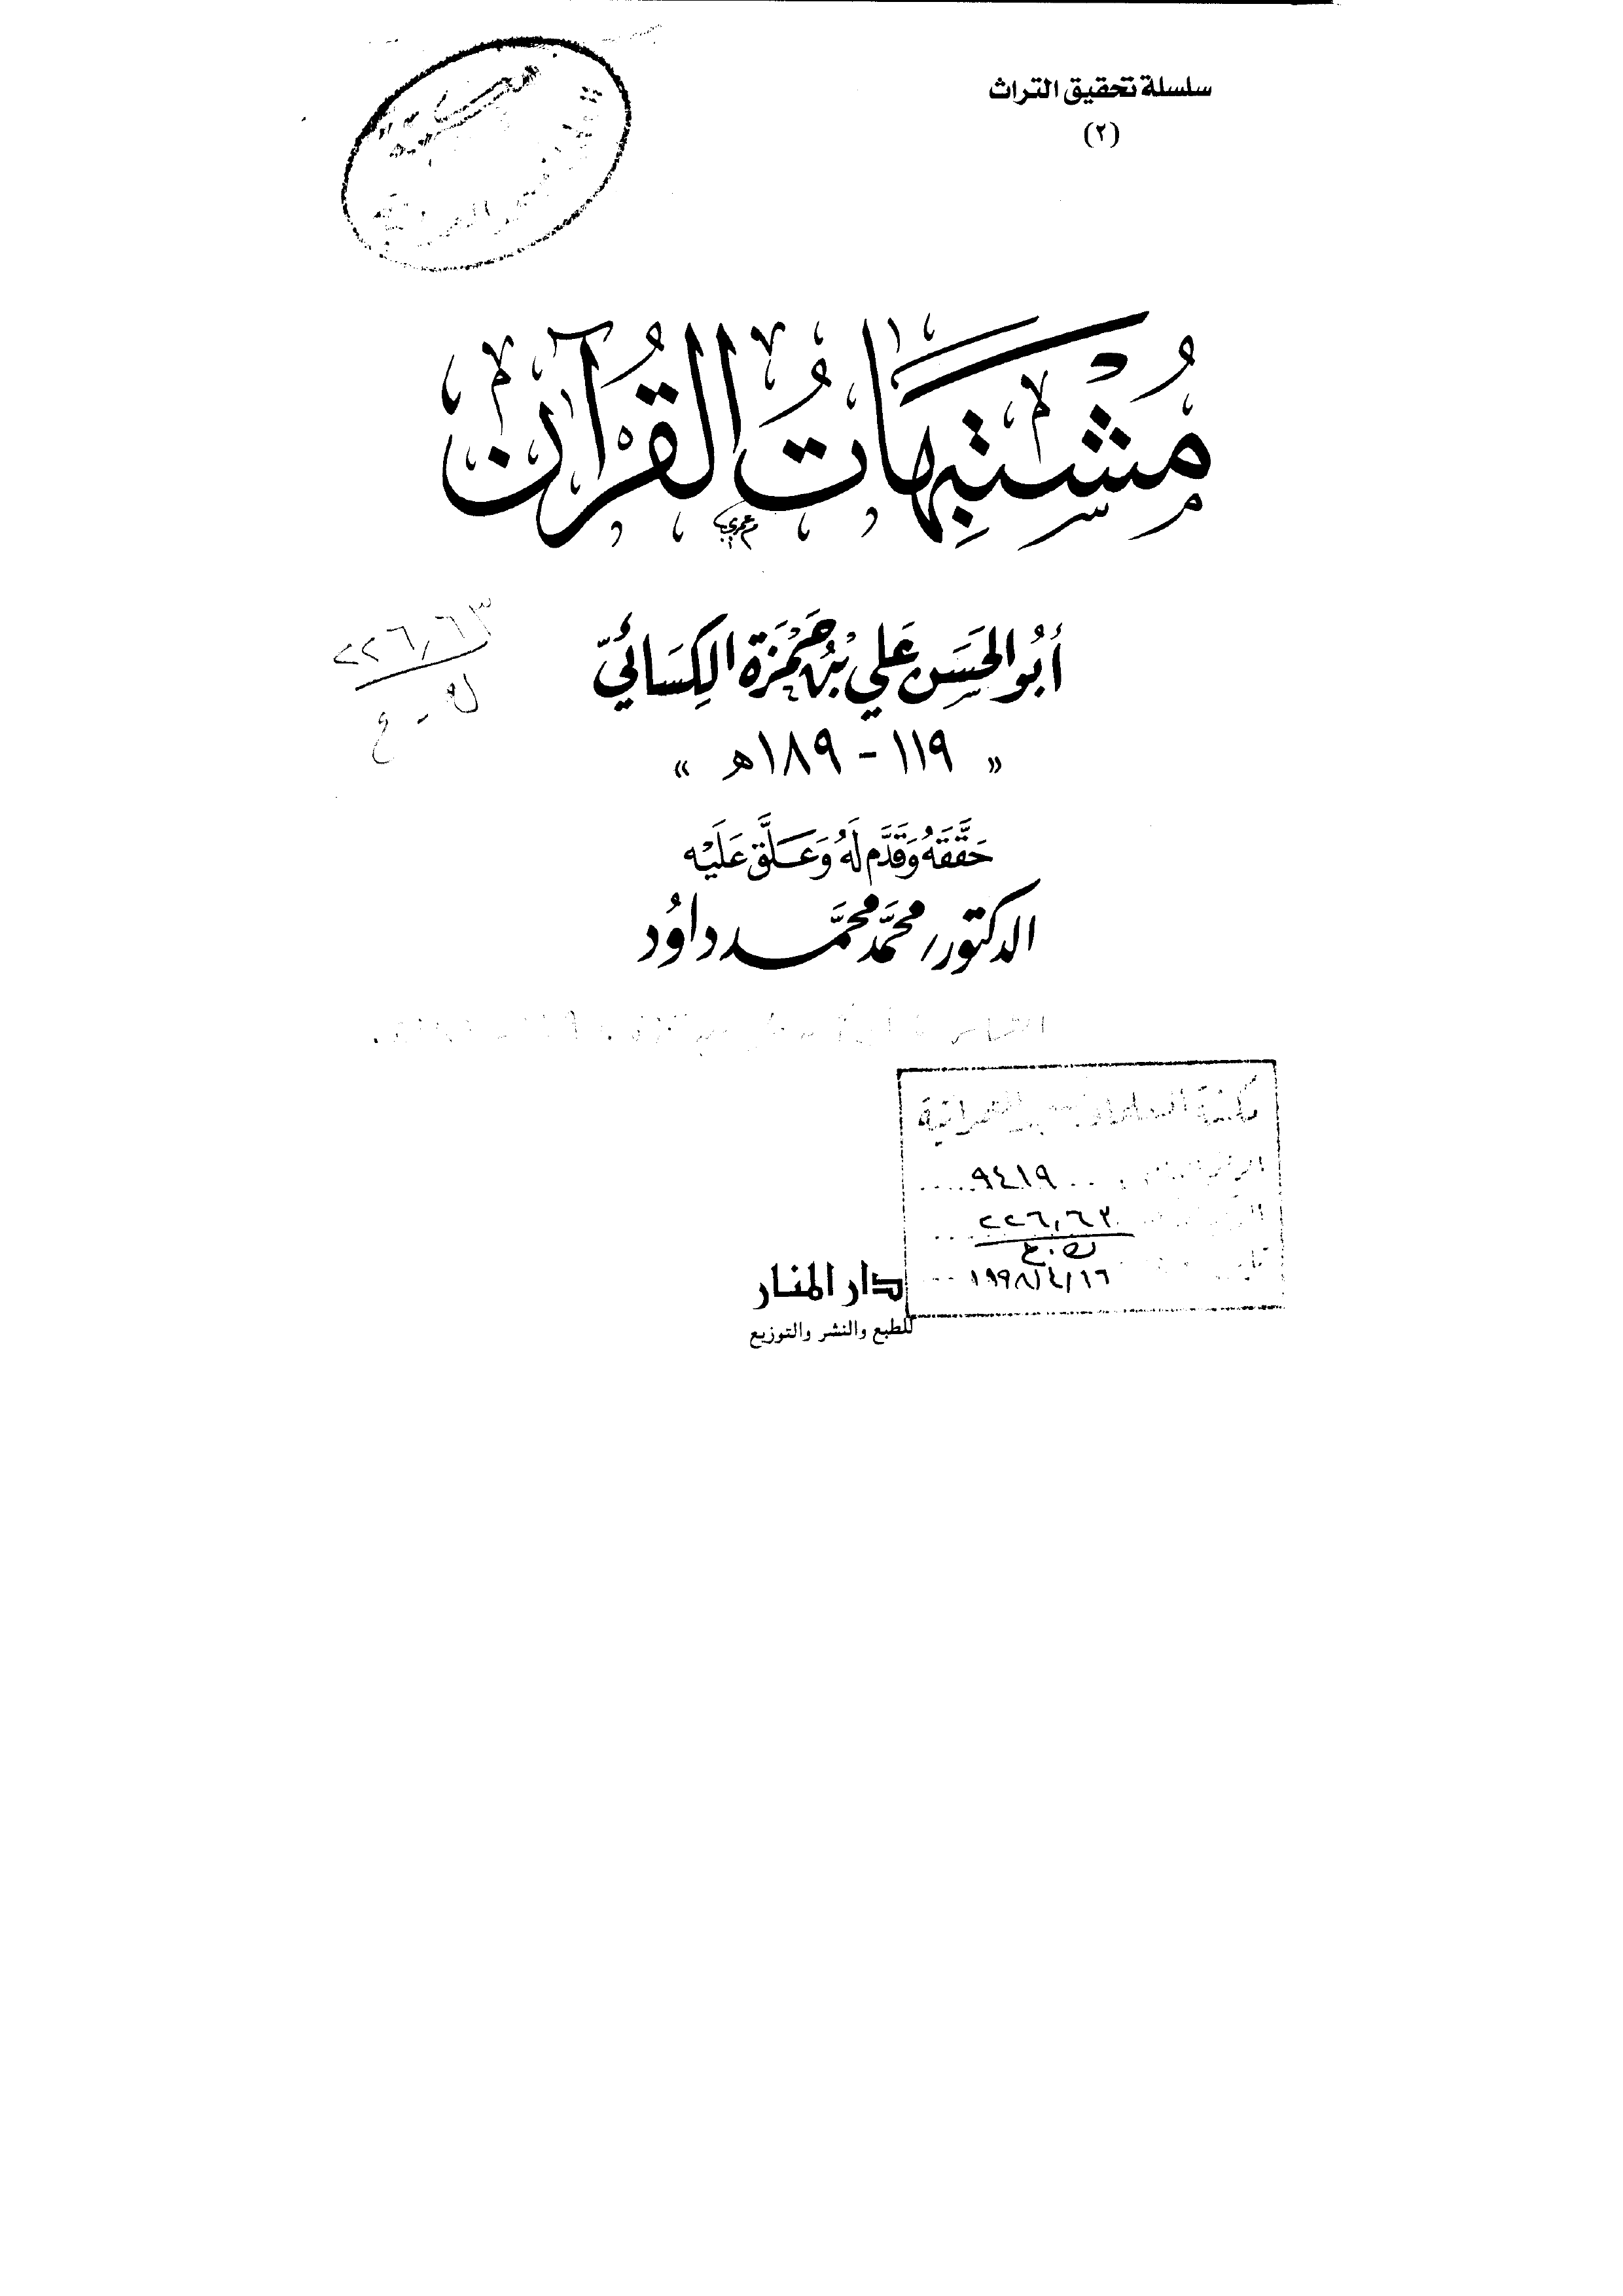 سلسلة تحقيق التراث
(٢)
مُشْتَبِهَاتُ القُرآن
أَبُو الحَسَن عَلي بْن حَمْزَة الكِسَائيّ
« ١١٩ - ١٨٩ه »
حَقَّقَهُ وَقَدَّم لَهُ وَعَلَّق عَلَيْه
الدكتور/ محمَّد محمَّد داوُد
٢٢٦,٦٣
٩٤١٩
٢٢٦,٦٣
١٩٩٨/٤/١٦
دار المنار
للطبع والنشر والتوزيع